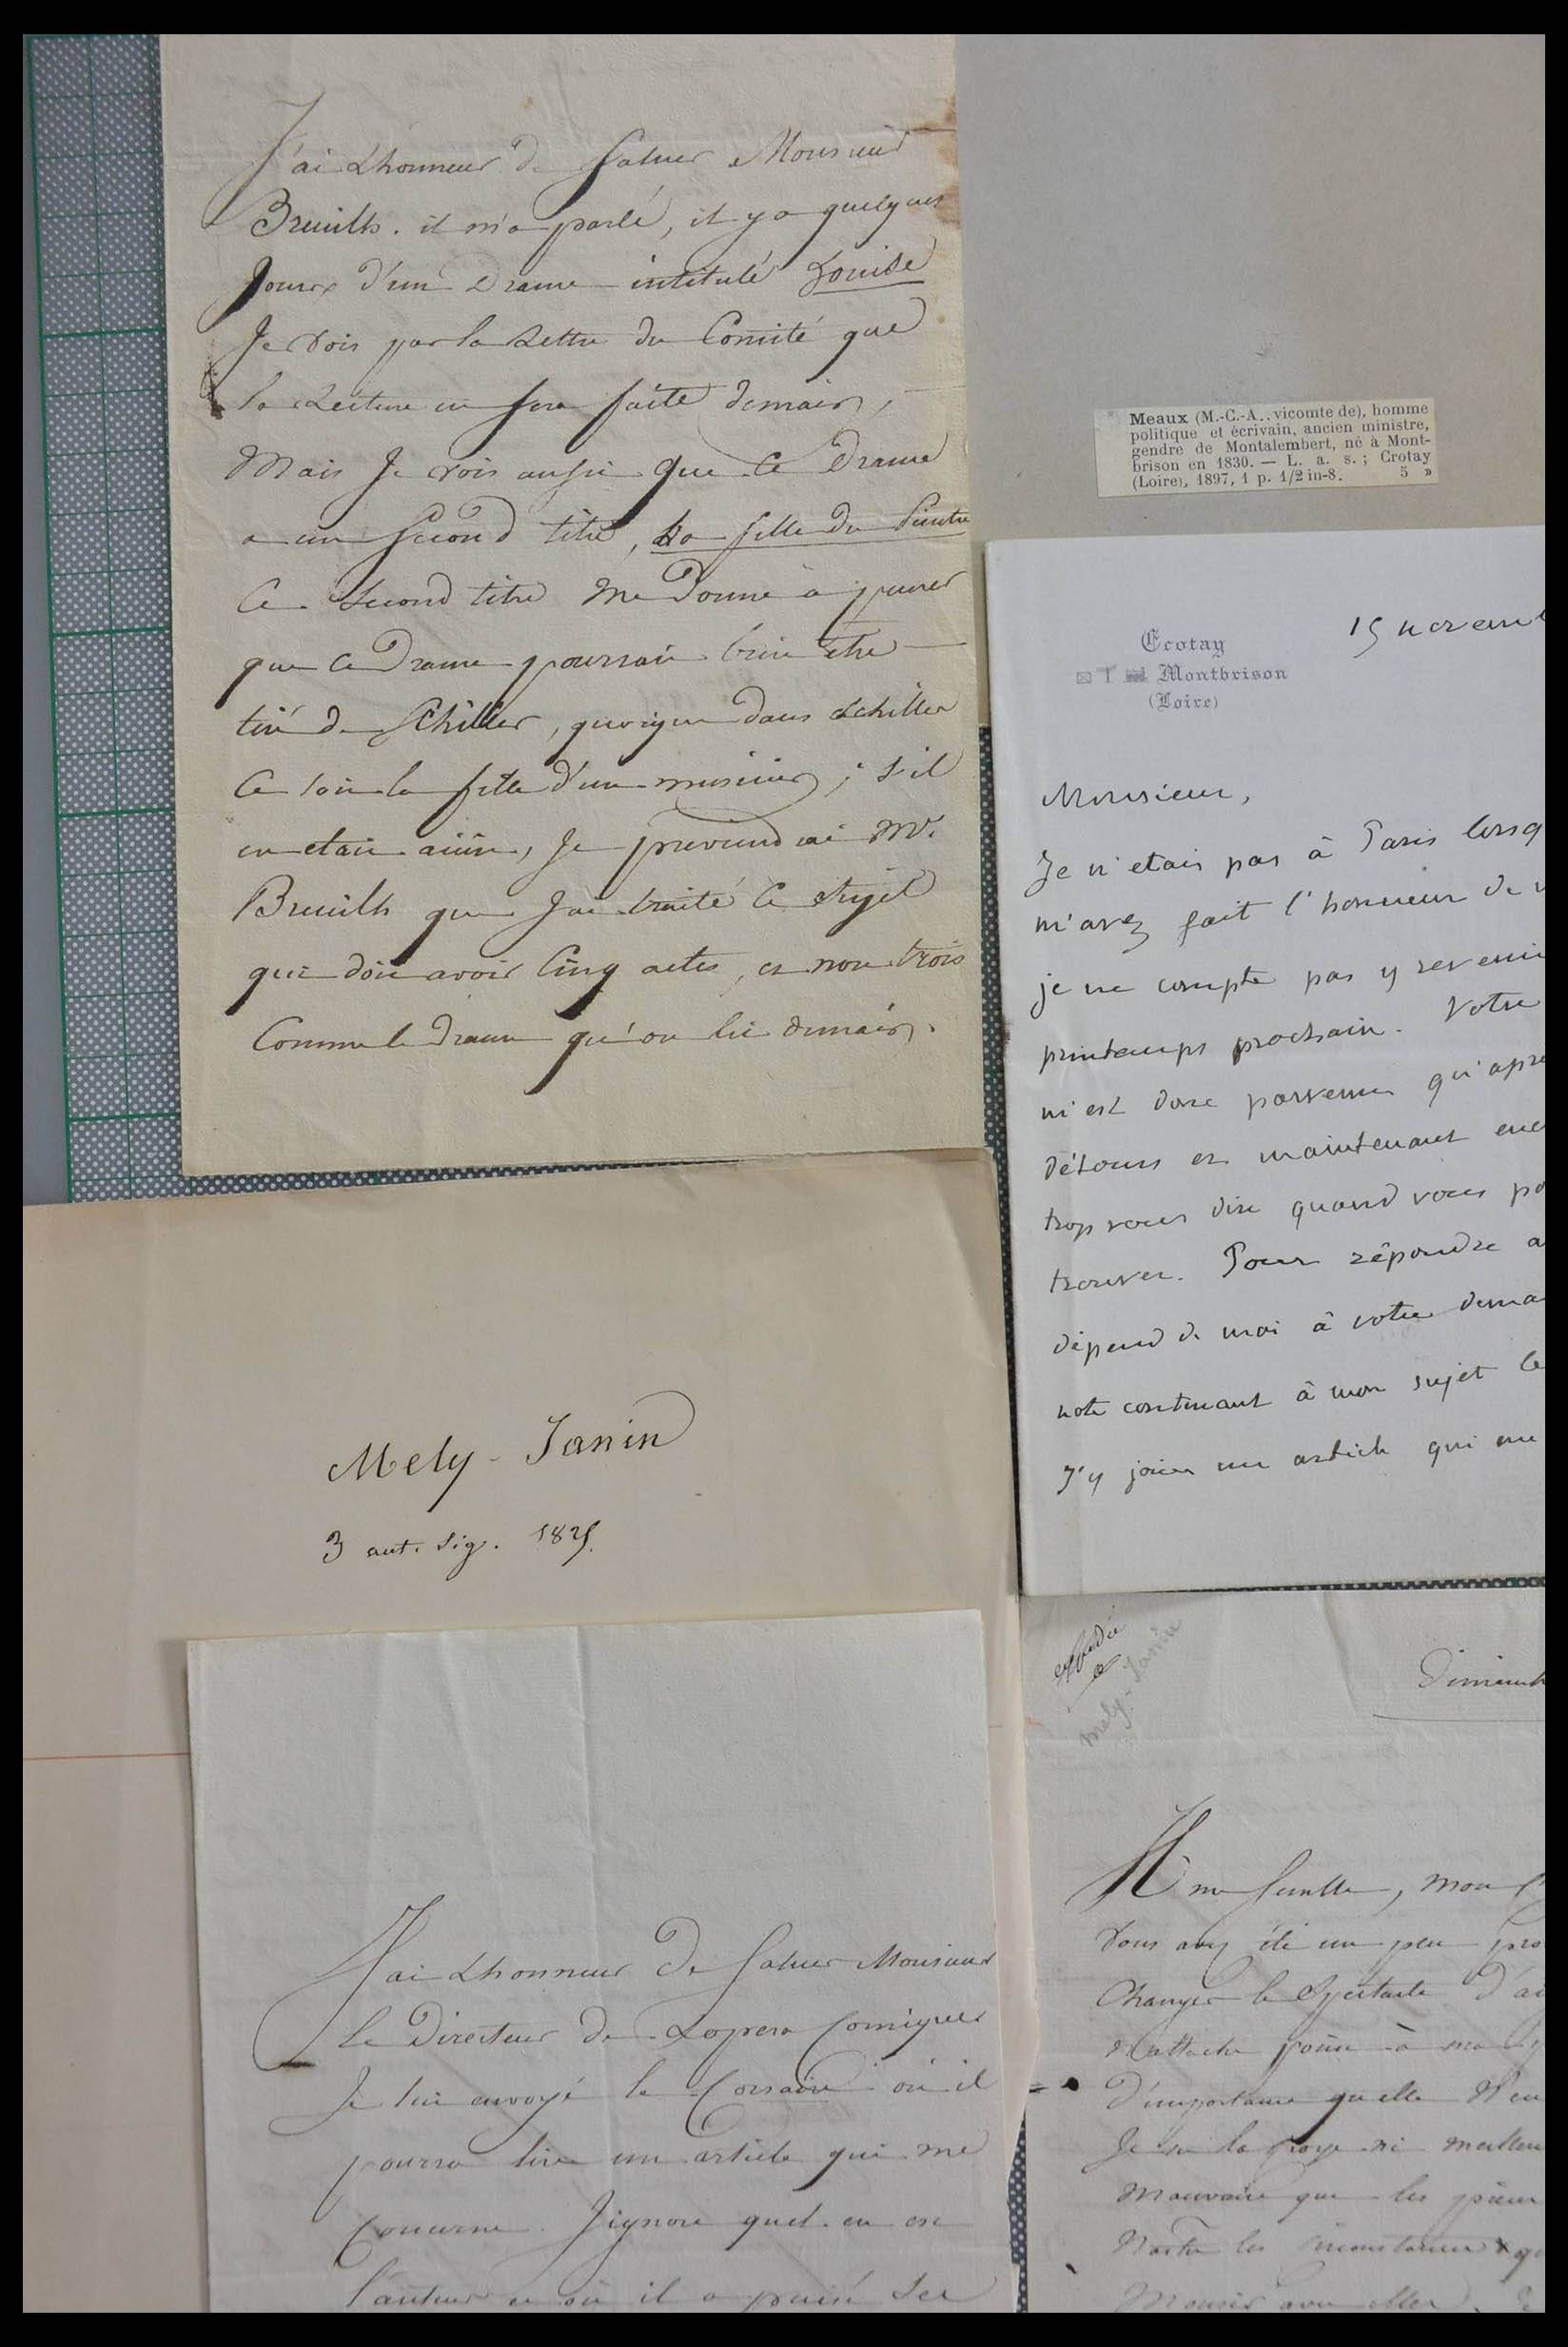 J'ai L'honneur de Saluer Monsieur
Breuilh. il m'a parlé, il y a quelques
Jours d'un Drame intitulé Louise
Je vois par la Lettre du Comité que
la Lecture en sera faite demain,
Mais Je vois aussi que Ce Drame
a un Second titre, La fille du Peintre
Ce Second titre me Donne à penser
que Ce Drame pourrait bien être
tiré de Schiller, quoique dans Schiller
Ce soit la fille d'un musicien ; S'il
en etait ainsi, Je previendrai Mr.
Breuilh que J'ai traité Ce Sujet
qui doit avoir Cinq actes, et non trois
Comme le Drame qu'on lit demain.
Meaux (M.-C.-A., vicomte de), homme
politique et écrivain, ancien ministre,
gendre de Montalembert, né à Mont-
brison en 1830. — L. a. s. ; Crotay
(Loire), 1897, 1 p. 1/2 in-8. 5 »
15 novem
Ecotay
Montbrison
(Loire)
Monsieur,
Je n'etais pas à Paris lorsq
m'avez fait l'honneur de v
je ne compte pas y revenir
printemps prochain. Votre
m'est donc parvenue qu'apre
détours et maintenant
trop vous dire quand vous po
trouver. Pour répondre a
dépend de moi à votre dema
note contenant à mon sujet le
J'y joins un article qui me
Mely-Janin
3 aut. sig. 1825.
J'ai L'honneur De Saluer Monsieur
le Directeur De Lopera Comique
Je lui envoyé le Corsaire où il
pourra lire un article qui me
Concerne. J'ignore quel en est
l'auteur et où il a puisé Ses
Mely-Janin
Dimanch
Il me semble, mon
Vous avez été un peu pro
Changer le Spectacle D'a
N'attache point à ma
D'importance qu'elle N'en
Je ne la Croye ni meilleu
Mauvaise que les
les Circonstances
Mourir avec elles